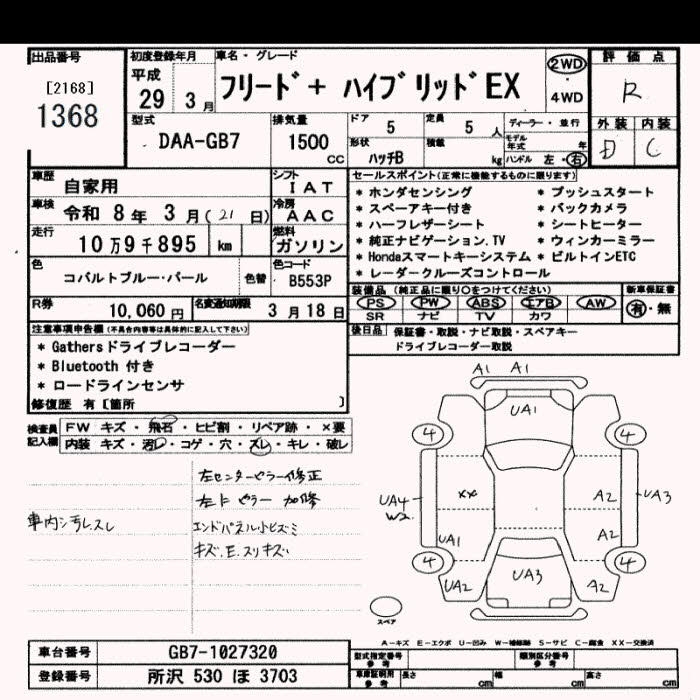 出品番号
[2168]
1368
初度登録年月
平成
29 3月
車名・グレード
フリード+ ハイブリッドEX
2WD
・
4WD
評価点
R
外装 内装
D C
型式
DAA-GB7
排気量
1500
CC
ドア
5
定員
5 人
形状
ハッチB
積載
kg
ディーラー・並行
モデル年式 年
ハンドル 左・右
車歴
自家用
シフト
IAT
車検
令和 8年 3月(21日)
冷房
AAC
走行
10万9千895 km
燃料
ガソリン
色
コバルトブルー・パール
色替
色コード
B553P
R券
10,060円
名変通知期限
3月18日
セールスポイント(正常に機能するものに限ります)
* ホンダセンシング
* スペアキー付き
* ハーフレザーシート
* 純正ナビゲーション.TV
* Hondaスマートキーシステム
* レーダークルーズコントロール
* プッシュスタート
* バックカメラ
* シートヒーター
* ウィンカーミラー
* ビルトインETC
装備品(純正品に限り○をつけてください)
PS PW ABS エアB AW
SR ナビ TV カワ
新車保証書
有・無
後日品 保証書・取説・ナビ取説・スペアキー
ドライブレコーダー取説
注意事項申告欄(不具合内容等は具体的に記入して下さい)
* Gathersドライブレコーダー
* Bluetooth 付き
* ロードラインセンサ
修復歴 有〔箇所 〕
検査員記入欄
FW キズ・飛石・ヒビ割・リペア跡・×要
内装 キズ・汚レ・コゲ・穴・スレ・キレ・破レ
左センターピラー修正
左Fピラー 加修
車内シミヨゴレスレ
エンドパネル小ヒズミ
キズ.E.スリキズ
A1 A1
UA1
4 4
XX
A2
UA4
W2
UA3
UA1
A2
4 4
UA2
UA3
A2
スペア
A-キズ E-エクボ U-凹み W-補修跡 S-サビ C-腐食 XX-交換済
車台番号 GB7-1027320
登録番号 所沢 530 ほ 3703
型式指定番号
参考
類別区分番号
参考
車庫証明用
参考
長さ cm
幅 cm
高さ cm